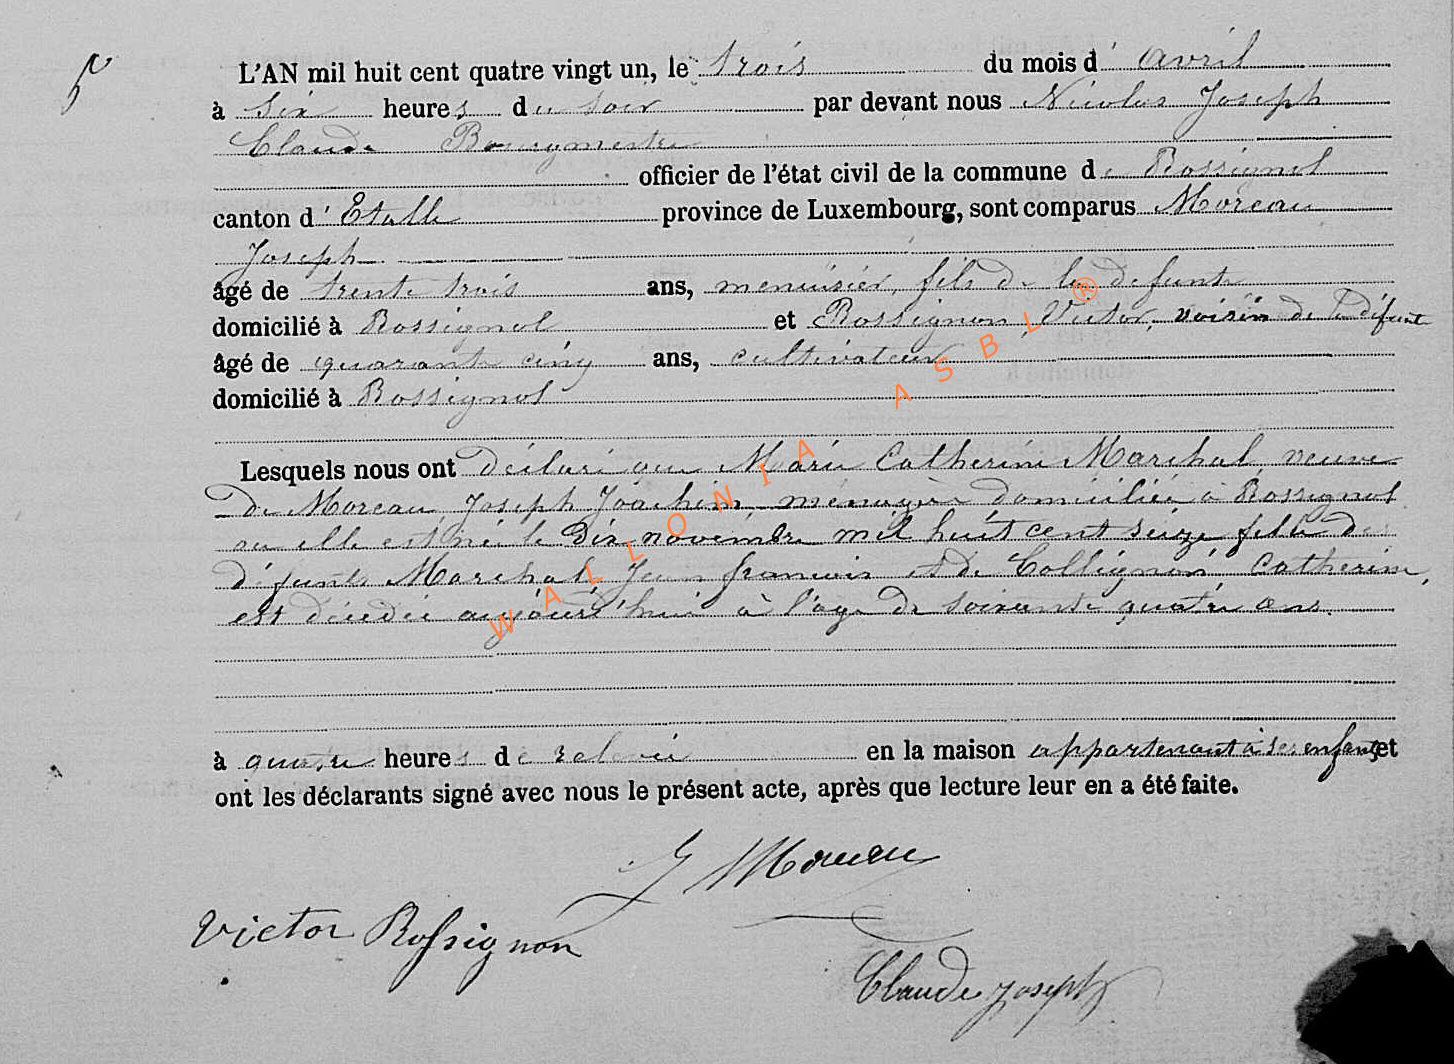 5
L'AN mil huit cent quatre vingt un, le trois du mois d'avril
à six heures du soir par devant nous Nicolas Joseph
Claude Bourgmestre
officier de l'état civil de la commune de Rossignol
canton d'Etalle province de Luxembourg, sont comparus Moreau
Joseph
âgé de trente trois ans, menuisier, fils de la défunte
domicilié à Rossignol et Rossignon Victor, voisin de la défunte
âgé de quarante cinq ans, cultivateur
domicilié à Rossignol
Lesquels nous ont déclaré que Marie Catherine Marchal, veuve
de Moreau Joseph Joachim ménagère domiciliée à Rossignol
ou elle est née le dix novembre mil huit cent seize fille de
défunts Marchal Jean françois et de Collignon Catherine,
est décédée aujourd'hui à l'age de soixante quatre ans.
à quatre heures de relevée en la maison appartenant à ses enfants et
ont les déclarants signé avec nous le présent acte, après que lecture leur en a été faite.
J Moreau
Victor Rossignon
Claude Joseph
WALLONIA ASBL ®